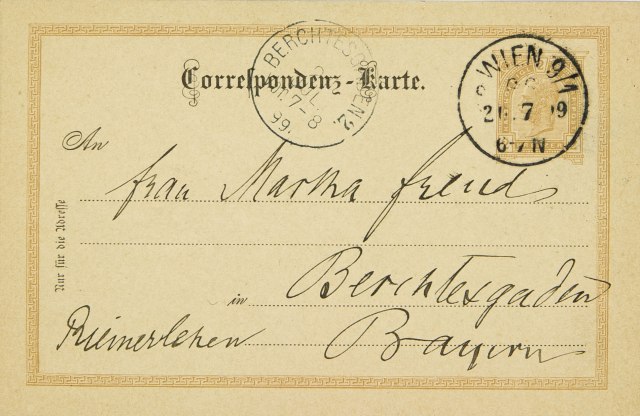 BERCHTESGADEN 2.
7-8
99.
WIEN 9/1
7 99
6-7 N
Correspondenz-Karte.
An
Frau Martha Freud
Nur für die Adresse
in Berchtesgaden
Riemerlehen Bayern